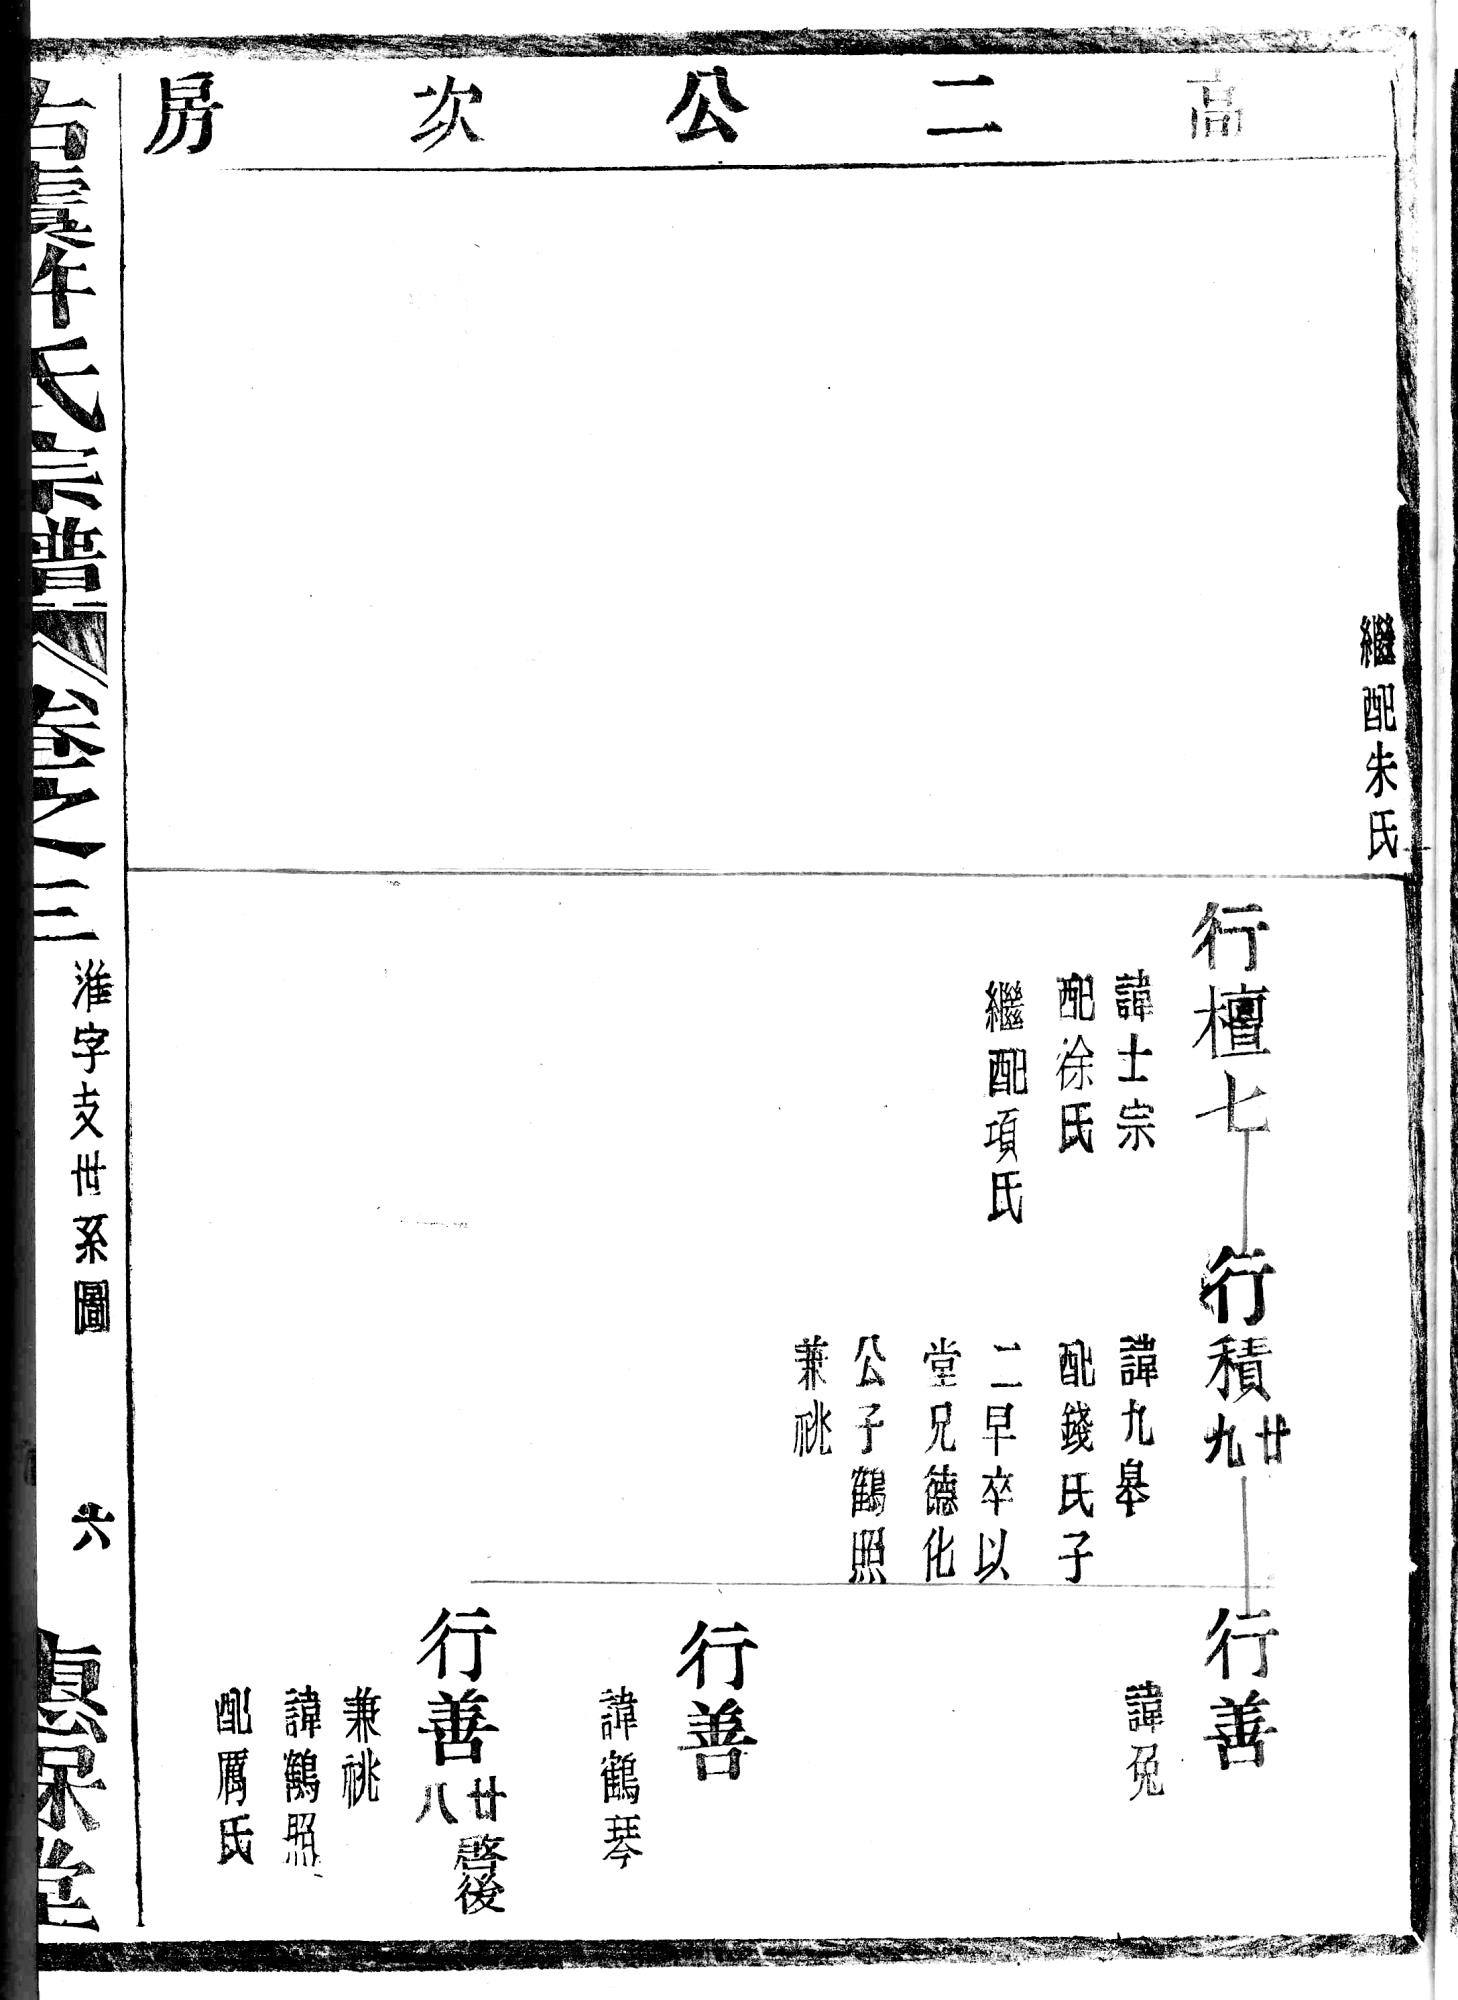 高二公次房
繼配朱氏
行檀七
諱士宗
配徐氏
繼配項氏
行積廿九
諱九皋
配錢氏子
二早卒以
堂兄德化
公子鶴照
兼祧
行善
諱兔
行善
諱鶴琴
行善廿八 啓後
兼祧
諱鶴照
配厲氏
古虞許氏宗譜 卷之三
淮字支世系圖
六
惇堂